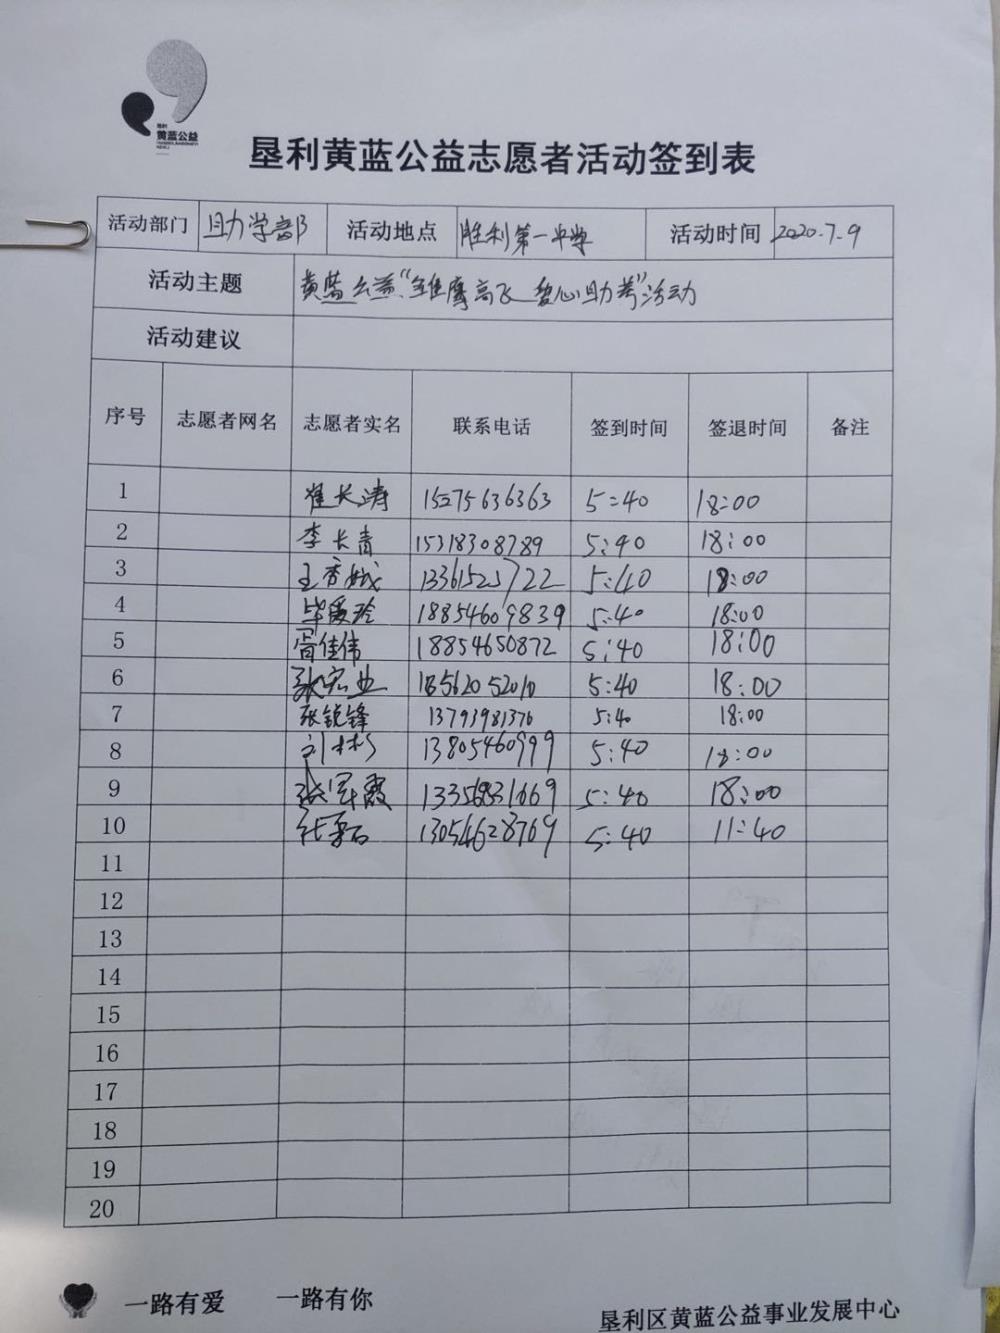 黄蓝公益
垦利黄蓝公益志愿者活动签到表
活动部门 助学部 活动地点 胜利第一中学 活动时间 2020-7-9
活动主题 黄蓝公益“雏鹰高飞 爱心助考”活动
活动建议
序号 志愿者网名 志愿者实名 联系电话 签到时间 签退时间 备注
1 崔长涛 15275636363 5:40 18:00
2 李长青 15318308789 5:40 18:00
3 13361525722 5:40 18:00
4 毕爱玲 18854609839 5:40 18:00
5 胥佳伟 18854650872 5:40 18:00
6 张宏业 18562052010 5:40 18:00
7 张锐锋 13793981376 5:40 18:00
8 刘彬 13805460999 5:40 18:00
9 张军霞 13356831669 5:40 18:00
10 13054628769 5:40 11:40
11
12
13
14
15
16
17
18
19
20
一路有爱 一路有你
垦利区黄蓝公益事业发展中心